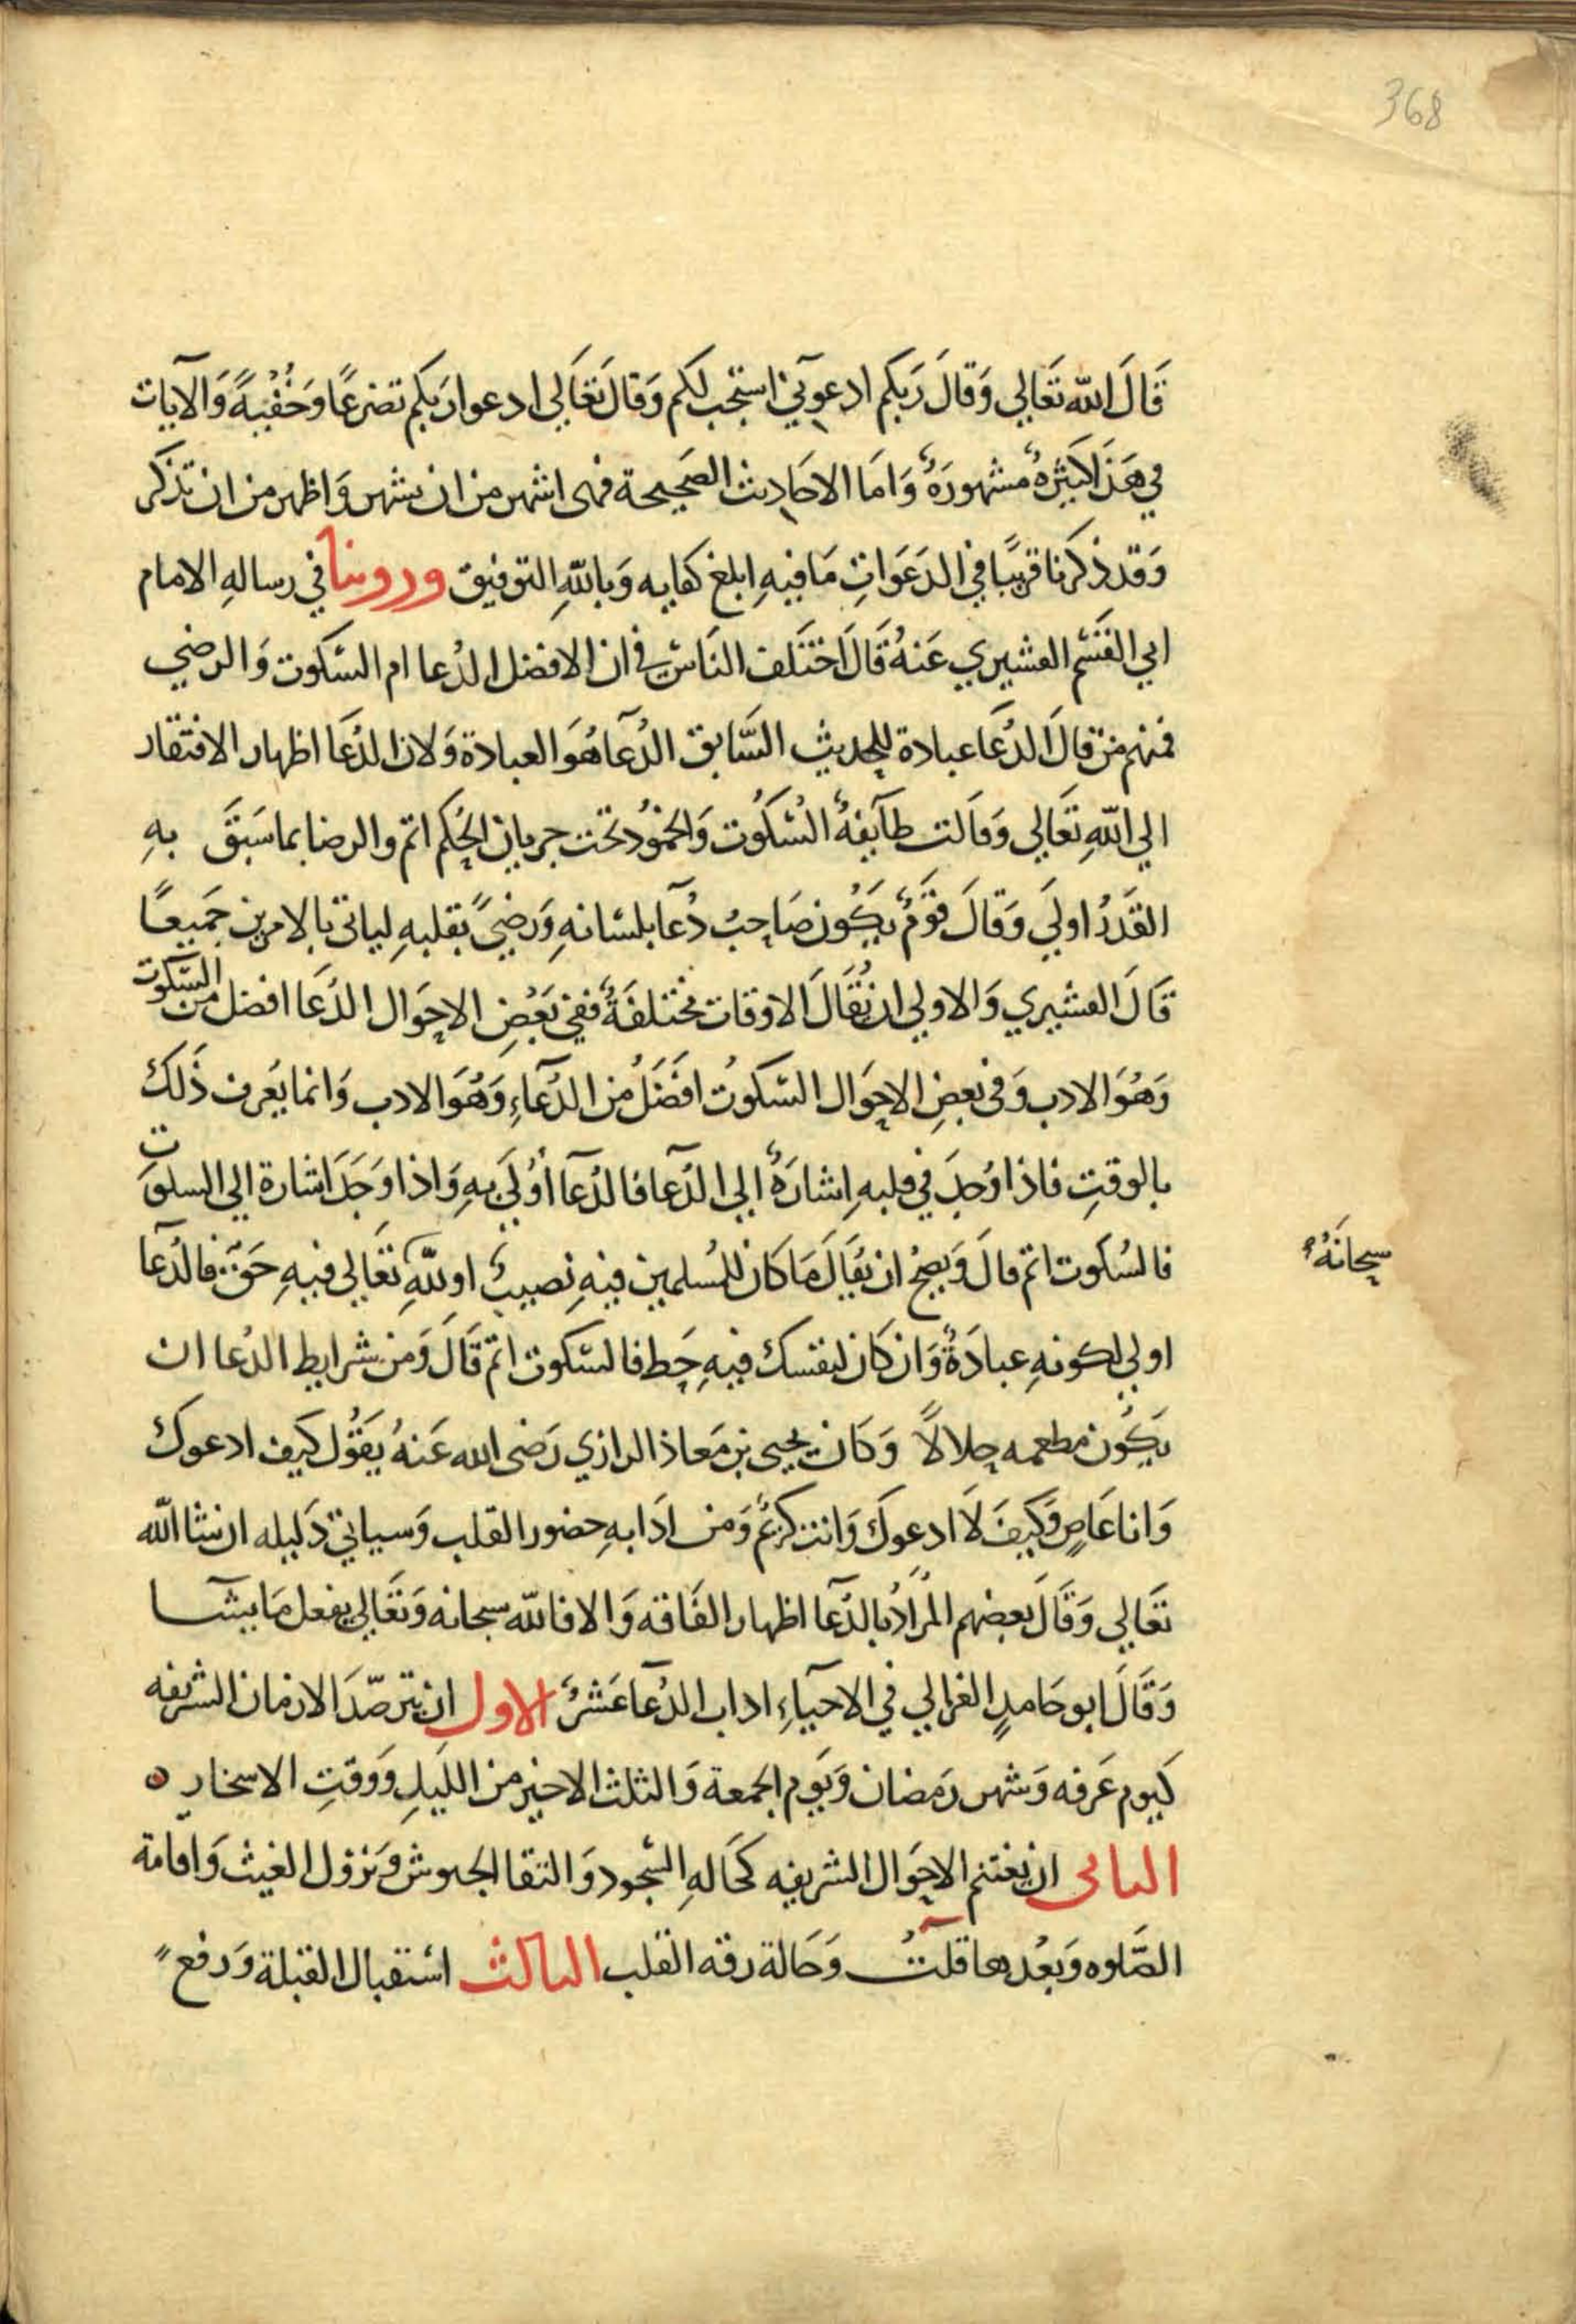 368
قَالَ الله تَعَالي وَقَالَ رَبكم ادعوني استجب لكم وَقَالَ تَعَالي ادعوا رَبكم تضرعًا وَخُفْيةً وَالآيات
في هَذا كثيرةٌ مشهورَةٌ وَامَا الاحَاديث الصَحيحة فهى اشهر من ان تشهر وَاظهر من ان تذكر
وَقد ذكرنا قريبًا في الدَعَوَاتِ مَا فيهِ ابلغ كفايه وَبالله التوفيق وروينا في رسالهِ الامام
ابي القسم القشيري عَنهُ قَالَ اختَلف النَاس في ان الافضل الدُعا ام السكوت وَالرضي
فمنهم من قالَ الدُعَا عبادة للحديث السَّابق الدُعآ هُوَ العبادة وَلان الدُعَا اظهار الافتقار
الي اللهِ تعَالي وَقالت طآيفةٌ السُكُوت وَالخمُود تحَت جريان الحُكم اتم والرضا بما سَبَقَ بهِ
القَدَرُ اولَي وَقالَ قوَمٌ يَكُون صَاحبُ دُعآ بلسَانهِ وَرضيً بقلبهِ لياتى بالامرين جمَيعًا
قَالَ القشيري وَالاولي ان يُقَالَ الاوقات مختلفَةٌ ففي بَعْضِ الاحوَال الدُعَا افضل من السَكوت
وَهُوَ الادب وَفى بعضِ الاحوَال السَكوتُ افضَلُ من الدُعآءِ وَهُوَ الادب وَانما يَعرف ذَلكَ
بالوقتِ فاذا وُجدَ في قلبهِ اِشارَةٌ الي الدُعآ فالدُعآ أوُلَي بهِ وَاذا وَجَدَ اشارة الي السكوَت
فالسُكوت اتم قالَ وَيصحُ ان يُقَالَ مَا كَان للمُسلمين فيهِ نصيبٌ او للهِ تعَالي فيهِ حَقٌ فالدُعآ
سبحانَهُ
اولي لكونهِ عبادَةٌ وَان كَان لنفسك فيهِ حَظ فالسَكوت اتم قَالَ وَمن شرايط الدُعا ان
يَكُون مطعمه حلالاً وَكَان يحيى بن مَعاذ الرازي رَضى الله عَنهُ يَقُول كيَف ادعوكَ
وَانا عَاصٍ وَكيفَ لَا ادعوكَ وَانت كريمٌ وَمن ادَابهِ حضور القلب وَسياتي دَليله ان شا الله
تعَالي وَقَالَ بعضهم المُرَادُ بالدُعآ اظهار الفَاقه وَالا فالله سبحانه وَتعَالي يفعل مَا يشآ
وَقَالَ ابو حَامدٍ الغزالي في الاحيآءِ اداب الدُعآ عَشرٌ الاول ان يترصّدَ الازمان الشريفه
كيَوم عَرفه وَشهر رَمَضان وَيَوم الجمعة وَالثلث الاخير من اللَيلِ وَوقتِ الاسحار
الثانى ان يغتنم الاحوَال الشريفه كحَالهِ السُجود وَالتقا الجيوش وَنزول الغيث وَاقامة
الصَلوه وَبَعْدهَا قلتُ وَحَالة رقه القلب الثالث استقبال القبلة وَرفع